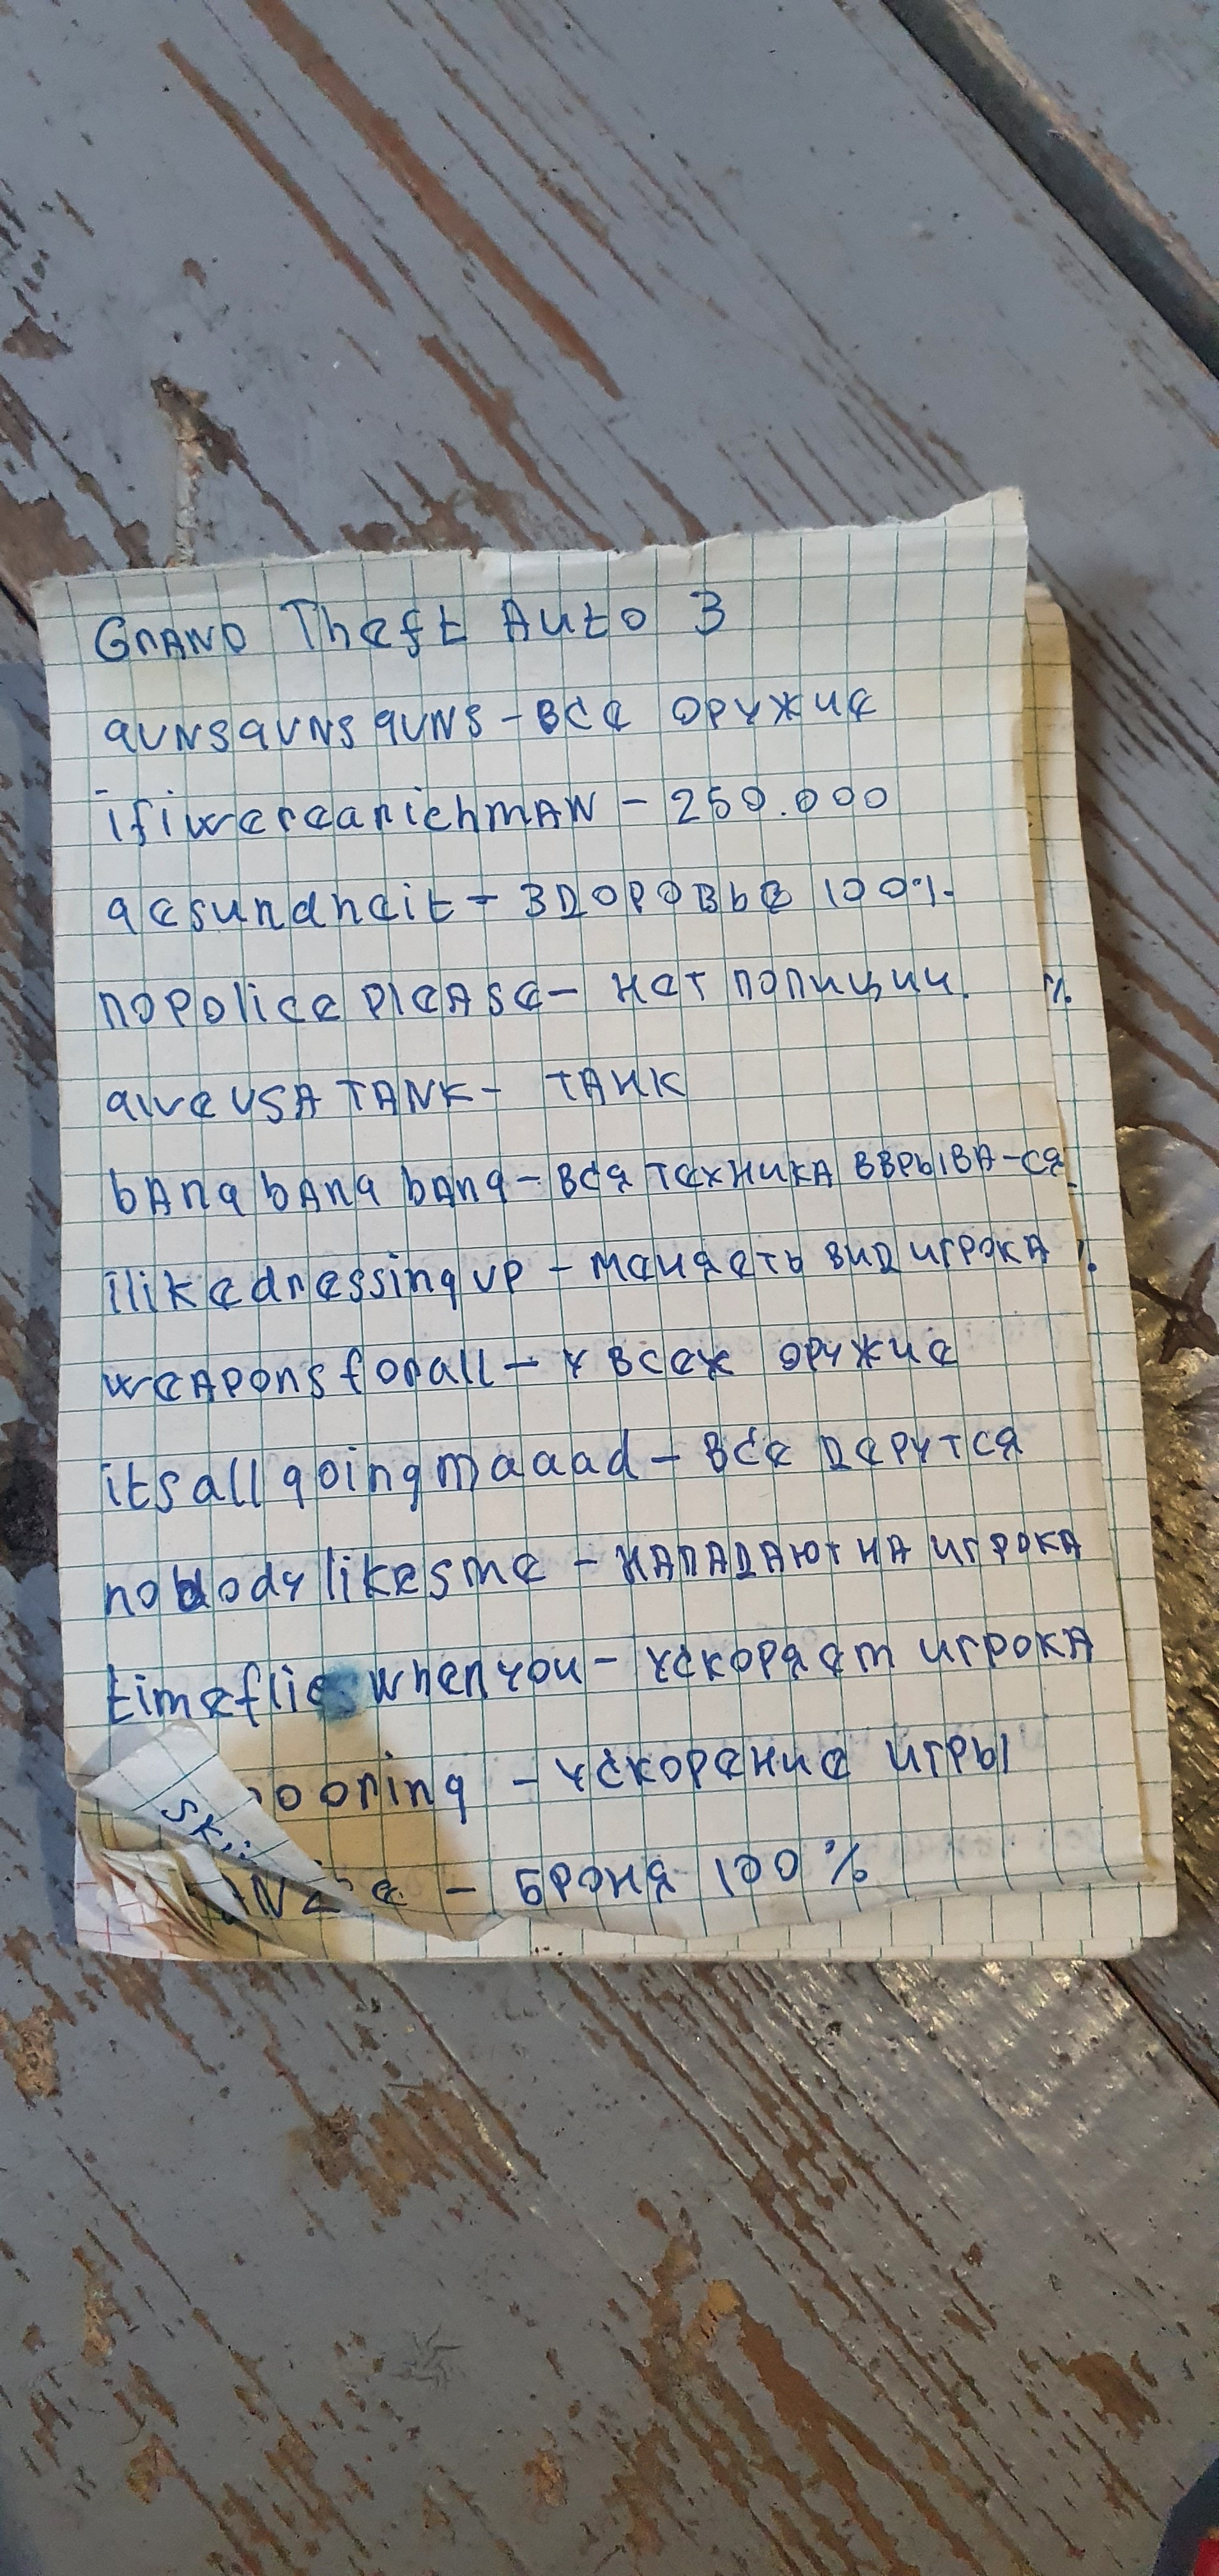 GRAND Theft Auto 3
gunsgunsguns - все оружие
ifiwerearichman - 250.000
gesundheit - здоровье 100%
nopoliceplease - нет полиции.
giveusatank - танк
bangbangbang - вся техника вврыва-ся.
ilikedressingup - меняеть вид игрока
weaponsforall - у всех оружие
itsallgoingmaaad - все дерутся
nobodylikesme - нападают на игрока
timeflieswhenyou - ускоряет игрока
- ускорение игры
- броня 100%